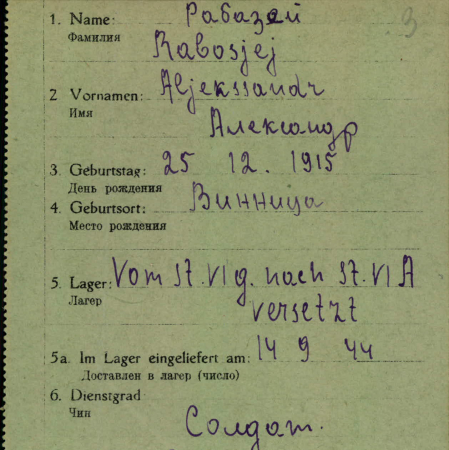 3
1. Name: Рабазей
Фамилия
Rabosjej
2 Vornamen: Aljekssandr
Имя
Александр
3. Geburtstag: 25 12. 1915
День рождения
4. Geburtsort: Винница
Место рождения
5. Lager: Vom St. VI g. nach St. VI A
Лагер
versetzt
5a. Im Lager eingeliefert am: 14 9 44
Доставлен в лагер (число)
6. Dienstgrad
Чин
Солдат.